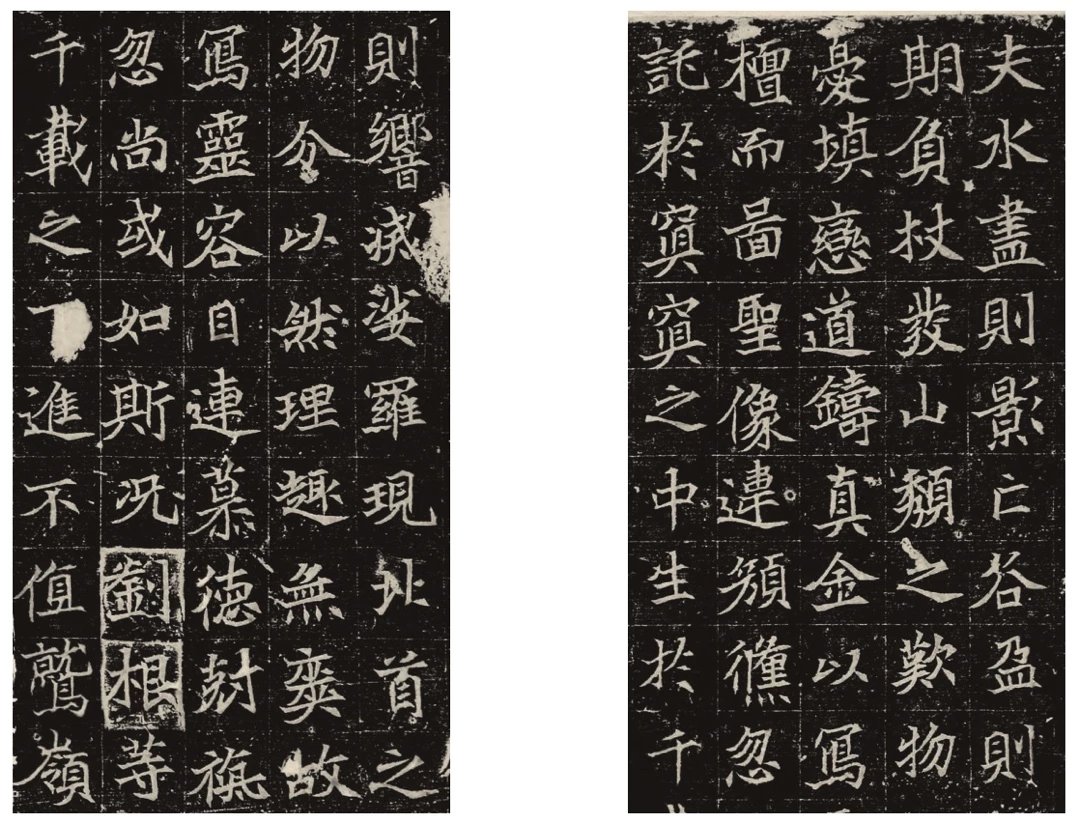 夫水盡則影亡谷盈則
期負杖發山頹之歎物
憂填戀道鑄真金以寫
檀而圖聖像違顏倏忽
託於冥冥之中生於千
則響滅娑羅現北首之
物分以然理趣無爽故
寫靈容目連慕德剋旃
忽尚或如斯況劉根等
千載之下進不值鷲嶺